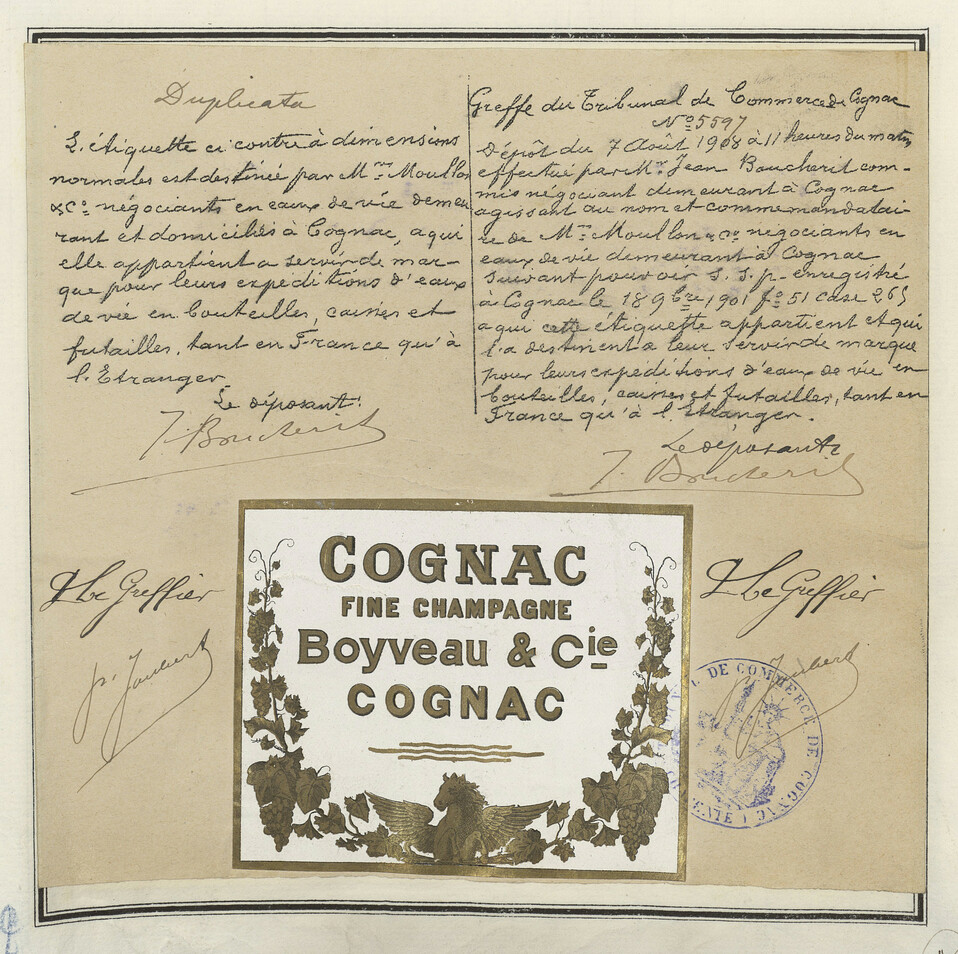 Duplicata
L'étiquette ci contre à dimensions
normales est destinée par Mrs Moullon
& Co négociants en eaux de vie demeu
rant et domiciliés à Cognac, a qui
elle appartient a servir de mar-
que pour leurs expéditions d'eaux
de vie en bouteilles, caisses et
futailles, tant en France qu'à
l'Etranger.
Le déposant:
J. Boucherit
Greffe du Tribunal de Commerce de Cognac
No 5597
Dépôt du 7 Août 1908 à 11 heures du matin
effectué par Mr Jean Boucherit com-
mis négociant demeurant à Cognac
agissant au nom et comme mandatai-
re de Mrs Moullon & Co négociants en
eaux de vie demeurant à Cognac
suivant pouvoir s.s.p. enregistré
à Cognac le 18 9bre 1901 fo 51 case 265
a qui cette étiquette appartient et qui
l'a destinent a leur servir de marque
pour leurs expéditions d'eaux de vie en
bouteilles, caisses et futailles, tant en
France qu'à l'Etranger.
Le déposant
J. Boucherit
Le Greffier
p. Joubert
COGNAC
FINE CHAMPAGNE
Boyveau & Cie
COGNAC
Le Greffier
Joubert
DE COMMERCE DE COGNAC